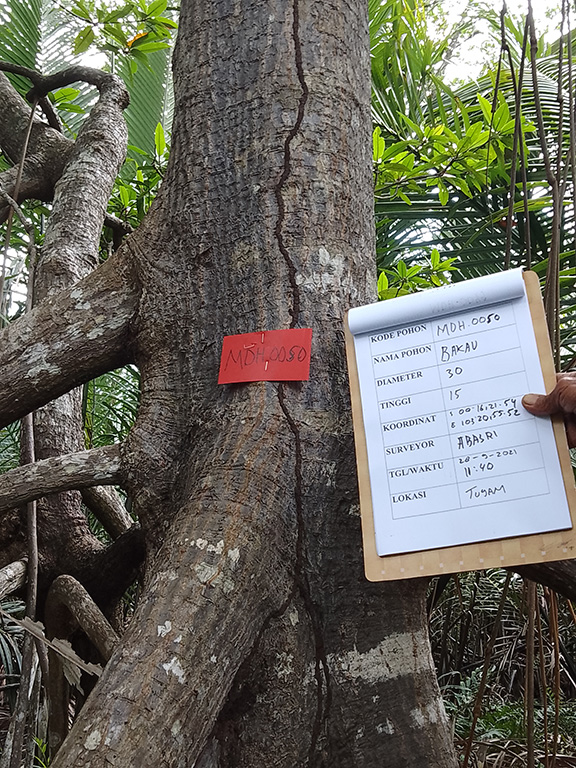 MDH.0050
KODE POHON MDH.0050
NAMA POHON BAKAU
DIAMETER 30
TINGGI 15
KOORDINAT S 00.16,21.54
E 103.20,55.52
SURVEYOR ABASRI
TGL/WAKTU 28-9-2021
11:40
LOKASI TUGAM